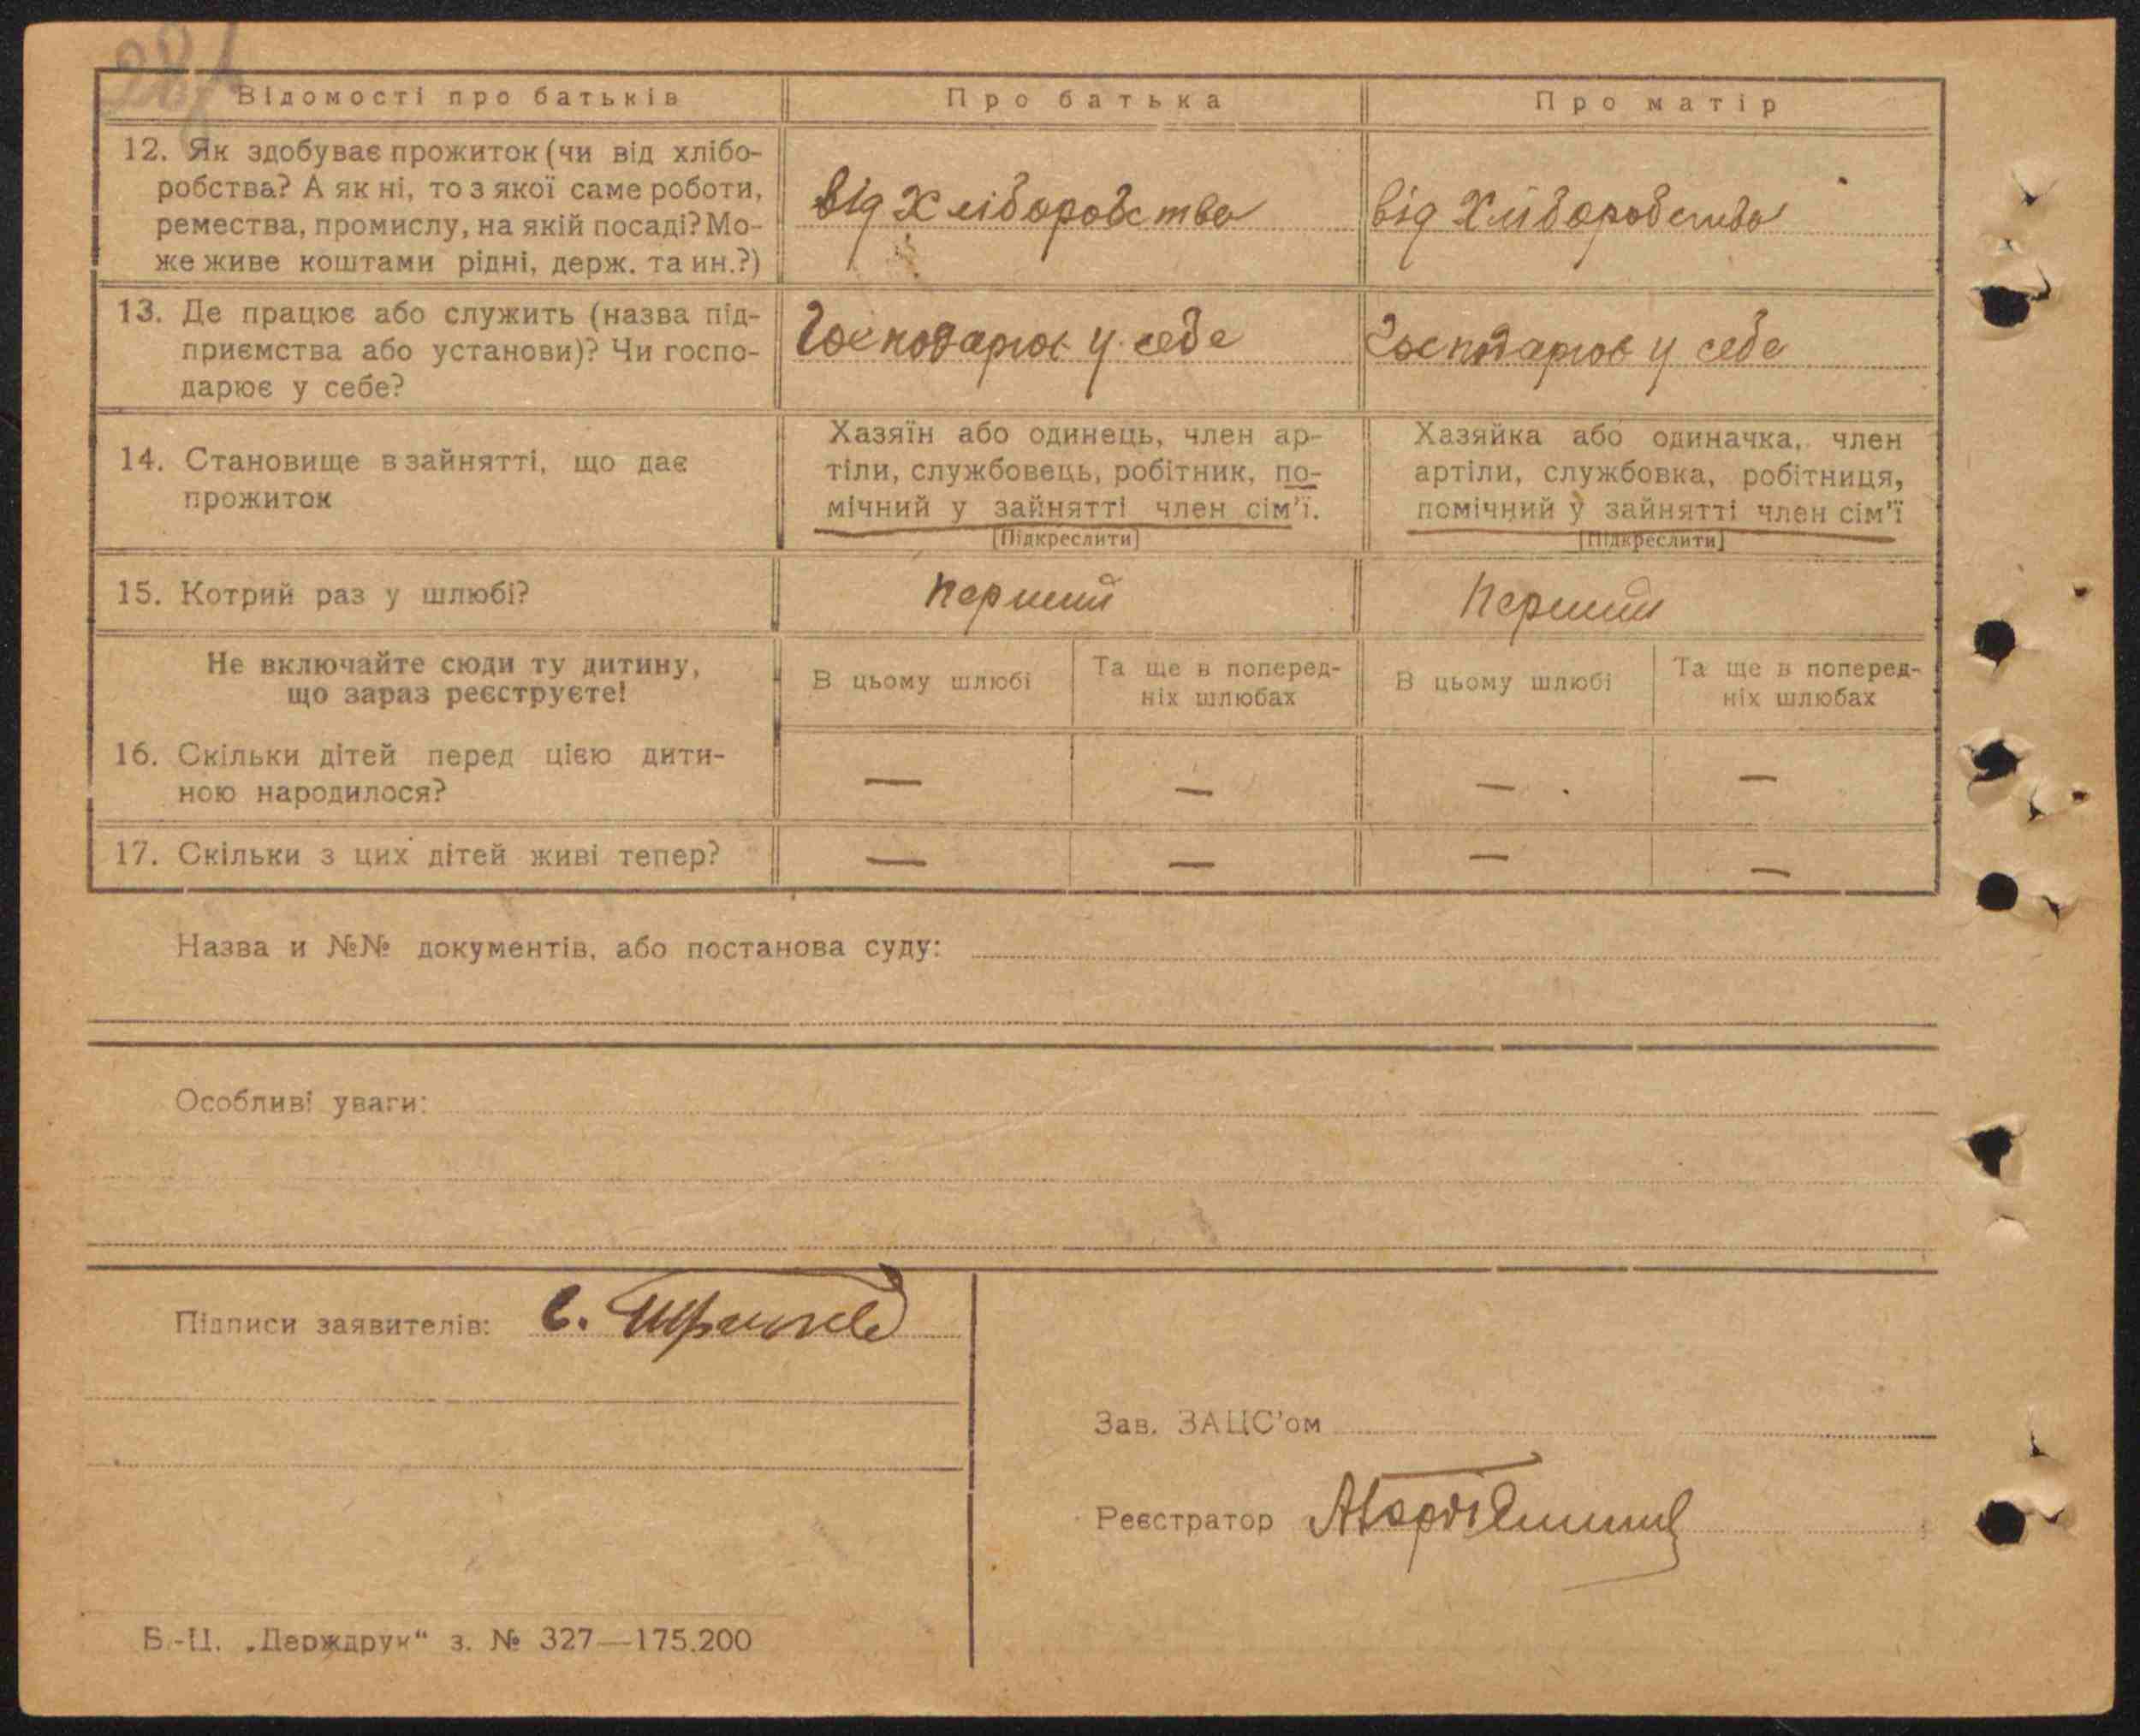 Відомості про батьків
Про батька
Про матір
12. Як здобуває прожиток (чи від хлібо-
робства? А як ні, то з якої саме роботи,
ремества, промислу, на якій посаді? Мо-
же живе коштами рідні, держ. та ин.?)
від Хліборобства
від Хліборобства
13. Де працює або служить (назва під-
приємства або установи)? Чи госпо-
дарює у себе?
Господарює у себе
Господарює у себе
14. Становище в зайнятті, що дає
прожиток
Хазяїн або одинець, член ар-
тіли, службовець, робітник, по-
мічний у зайнятті член сім'ї.
[Підкреслити]
Хазяйка або одиначка, член
артіли, службовка, робітниця,
помічний у зайнятті член сім'ї
[Підкреслити]
15. Котрий раз у шлюбі?
Перший
Перший
Не включайте сюди ту дитину,
що зараз реєструєте!
В цьому шлюбі
Та ще в поперед-
ніх шлюбах
В цьому шлюбі
Та ще в поперед-
ніх шлюбах
16. Скільки дітей перед цією дити-
ною народилося?
— — — —
17. Скільки з цих дітей живі тепер?
— — — —
Назва и №№ документів, або постанова суду:
Особливі уваги:
Підписи заявителів: С.
Зав. ЗАЦС'ом
Реєстратор
Б.-Ц. „Держдрук“ з. № 327—175.200